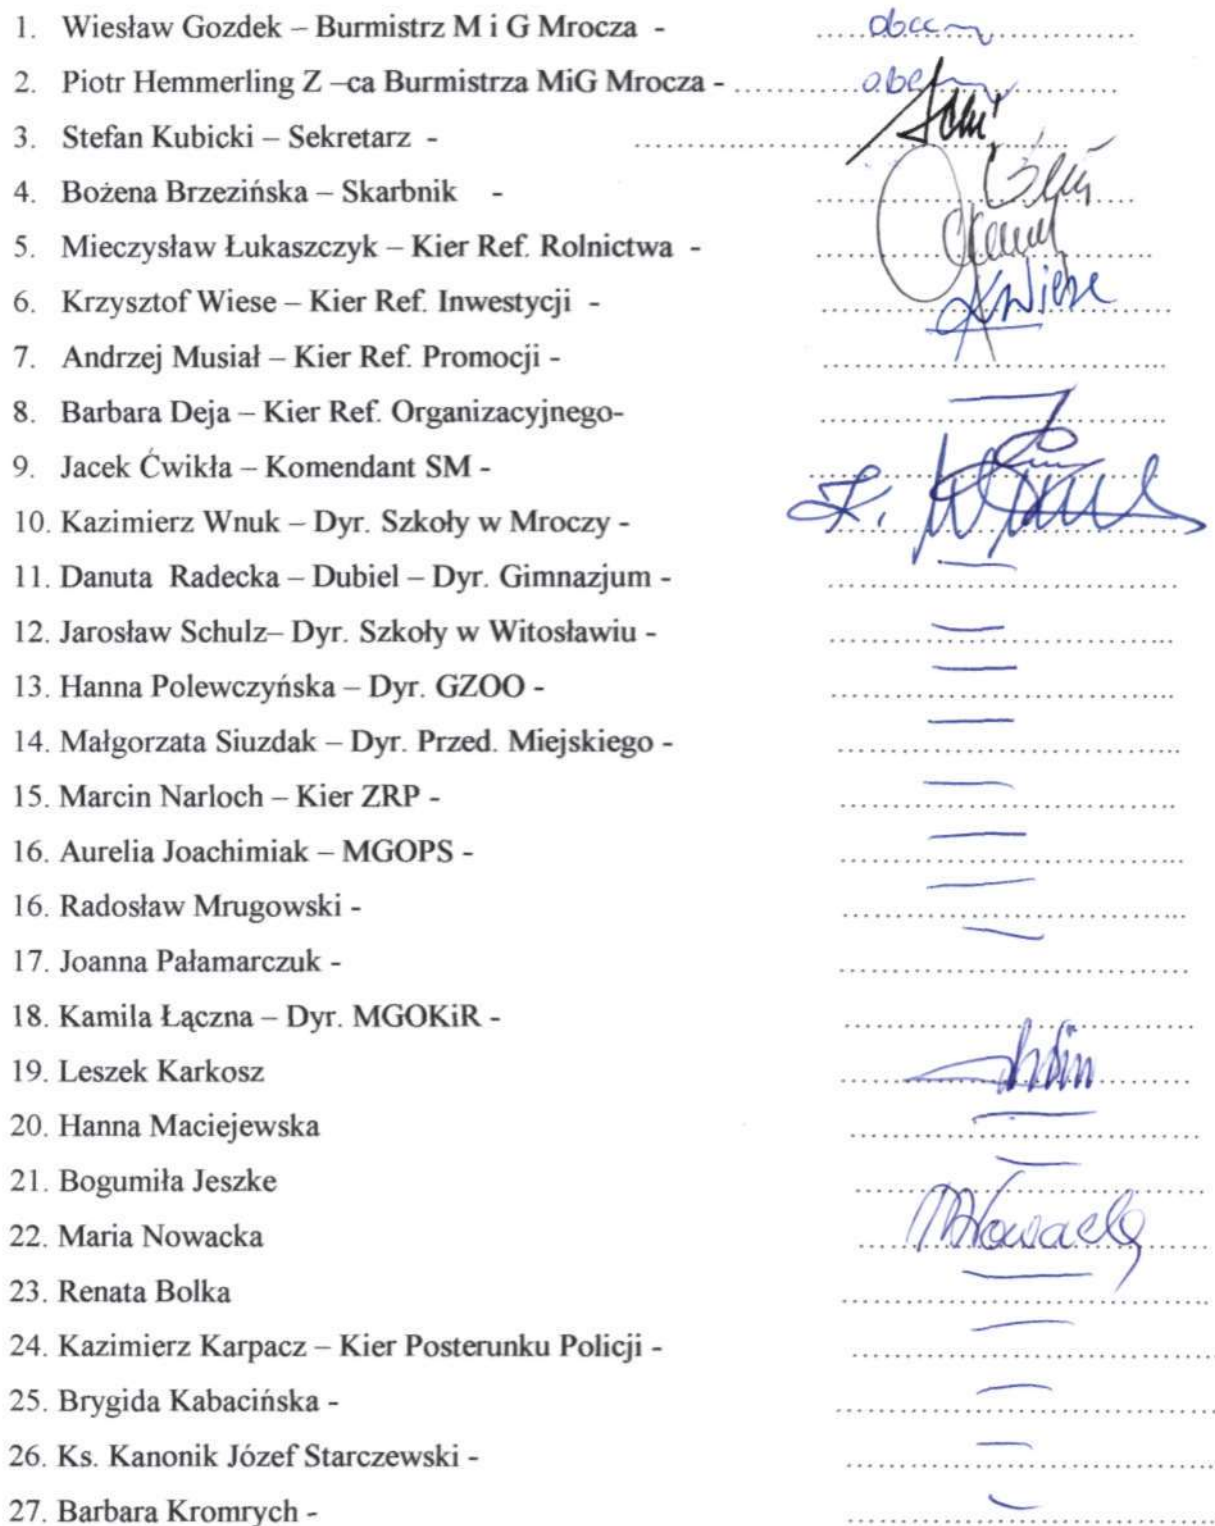 1. Wiesław Gozdek – Burmistrz M i G Mrocza - ..... obecny ...............
2. Piotr Hemmerling Z –ca Burmistrza MiG Mrocza - ............ obecny ...............
3. Stefan Kubicki – Sekretarz - ........................
4. Bożena Brzezińska – Skarbnik - ........................
5. Mieczysław Łukaszczyk – Kier Ref. Rolnictwa - ........................
6. Krzysztof Wiese – Kier Ref. Inwestycji - ............ KWiese ............
7. Andrzej Musiał – Kier Ref. Promocji - ........................
8. Barbara Deja – Kier Ref. Organizacyjnego- ........................
9. Jacek Ćwikła – Komendant SM - ........................
10. Kazimierz Wnuk – Dyr. Szkoły w Mroczy - ........................
11. Danuta Radecka – Dubiel – Dyr. Gimnazjum - ........................
12. Jarosław Schulz– Dyr. Szkoły w Witosławiu - ........................
13. Hanna Polewczyńska – Dyr. GZOO - ........................
14. Małgorzata Siuzdak – Dyr. Przed. Miejskiego - ........................
15. Marcin Narloch – Kier ZRP - ........................
16. Aurelia Joachimiak – MGOPS - ........................
16. Radosław Mrugowski - ........................
17. Joanna Pałamarczuk - ........................
18. Kamila Łączna – Dyr. MGOKiR - ........................
19. Leszek Karkosz ........................
20. Hanna Maciejewska ........................
21. Bogumiła Jeszke ........................
22. Maria Nowacka ...... MNowacka ......
23. Renata Bolka ........................
24. Kazimierz Karpacz – Kier Posterunku Policji - ........................
25. Brygida Kabacińska - ........................
26. Ks. Kanonik Józef Starczewski - ........................
27. Barbara Kromrych - ........................